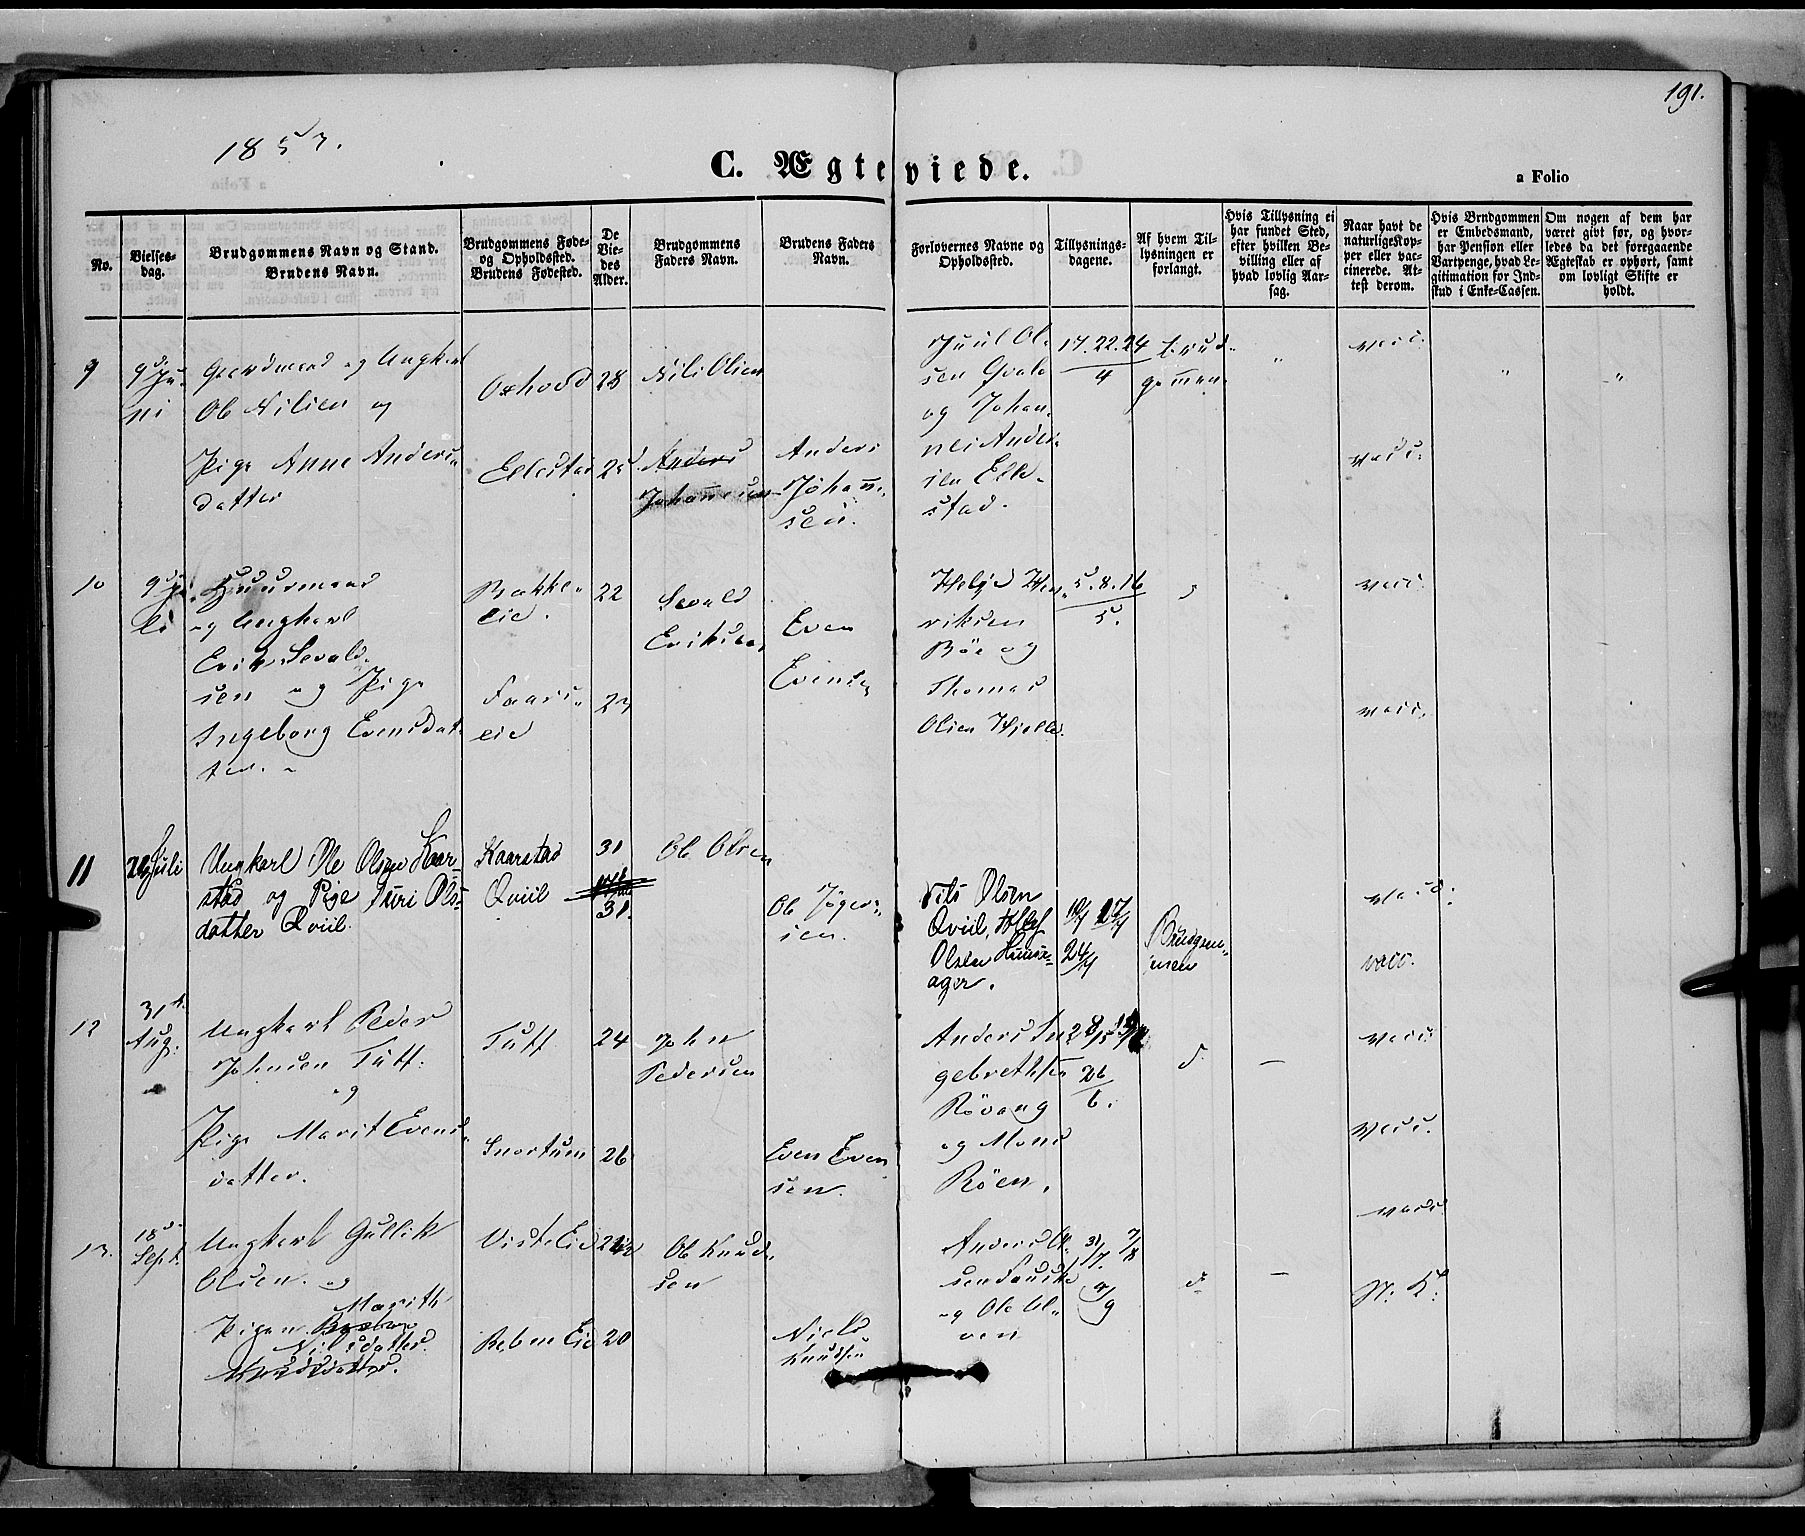 191.
1853.
C. Ægteviede.
a Folio
No.
Vielses-
dag.
Brudgommens Navn og Stand.
Brudens Navn.
Brudgommens Føde-
og Opholdssted.
Brudens Fødested.
De
Vie-
des
Alder.
Brudgommens
Faders Navn.
Brudens Faders
Navn.
Forlovernes Navne og
Opholdssted.
Tillysnings-
dagene.
Af hvem Til-
lysningen er
forlangt.
Hvis Tillysning ei
har fundet Sted,
efter hvilken Be-
villing eller af
hvad lovlig Aar-
sag.
Naar havt de
naturlige Kop-
per eller vac-
cinerede. At-
test derom.
Hvis Brudgommen
er Embedsmand,
har Pension eller
Vartpenge, hvad Le-
gitimation for Ind-
skud i Enke-Cassen.
Om nogen af dem har
været givt før, og hvor-
ledes da det foregaaende
Ægteskab er ophørt, samt
om lovligt Skifte er
holdt.
9
9d Ju-
ni
Gaardmand og Ungkarl
Ole Nilsen og
Pige Anne Anders-
datter
Oxhovd
Ellestad
28
25
Nils Olsen
Anders
Johannesen
Anders
Johanne-
sen.
Juul Ol-
sen Qvale
og Johan-
nes Ander-
sen Elle-
stad.
17. 22. 24
4
brud-
gommen
"
vacc.
vacc.
"
"
10
9d Ju-
li
Huusmand
og Ungkarl
Erik Sevald-
sen og Pige
Ingeborg Evensdat-
ter.
Bakke-
eie.
Faars-
eie
22
23
Sevald
Eriksen
Even
Evensen
Helge Hen-
riksen
Böe og
Thomas
Olsen Hjelle.
5. 8. 16
5.
vacc.
vacc.
11
Juli
Ungkarl Ole Olsen Kaar-
stad og Pige Turi Ols-
datter Qviil.
Kaarstad
Qviil
31
31.
Ole Olsen
Ole Jöger-
sen.
Nils Olsen
Qviil, Helg
Olsen Huus-
ager.
10/4 17/4
24/4
Brudgom-
men
vacc.
vacc.
12
31t
Aug.
Ungkarl Peder
Johnsen Tuff.
og
Pige Marit Evens-
datter.
Tuff
Snortum
24
26
John
Pedersen
Even Even
sen.
Anders In-
gebrethsen
Rövang
og Mons
Röen.
28/5
26
6.
d
–
vacc.
vacc.
13.
18d
Sept.
Ungkarl Gullik
Olsen. og
Marith
Pigen
Nilsdatter.
Knudsdatter.
Viste Eie
Reben Eie
20
Ole Knud-
sen
Niels
Knudsen
Anders Ol-
sen Fauske
og Ole Ol-
sen
31/7. 7/8
9
d
–
vacc
N. K.